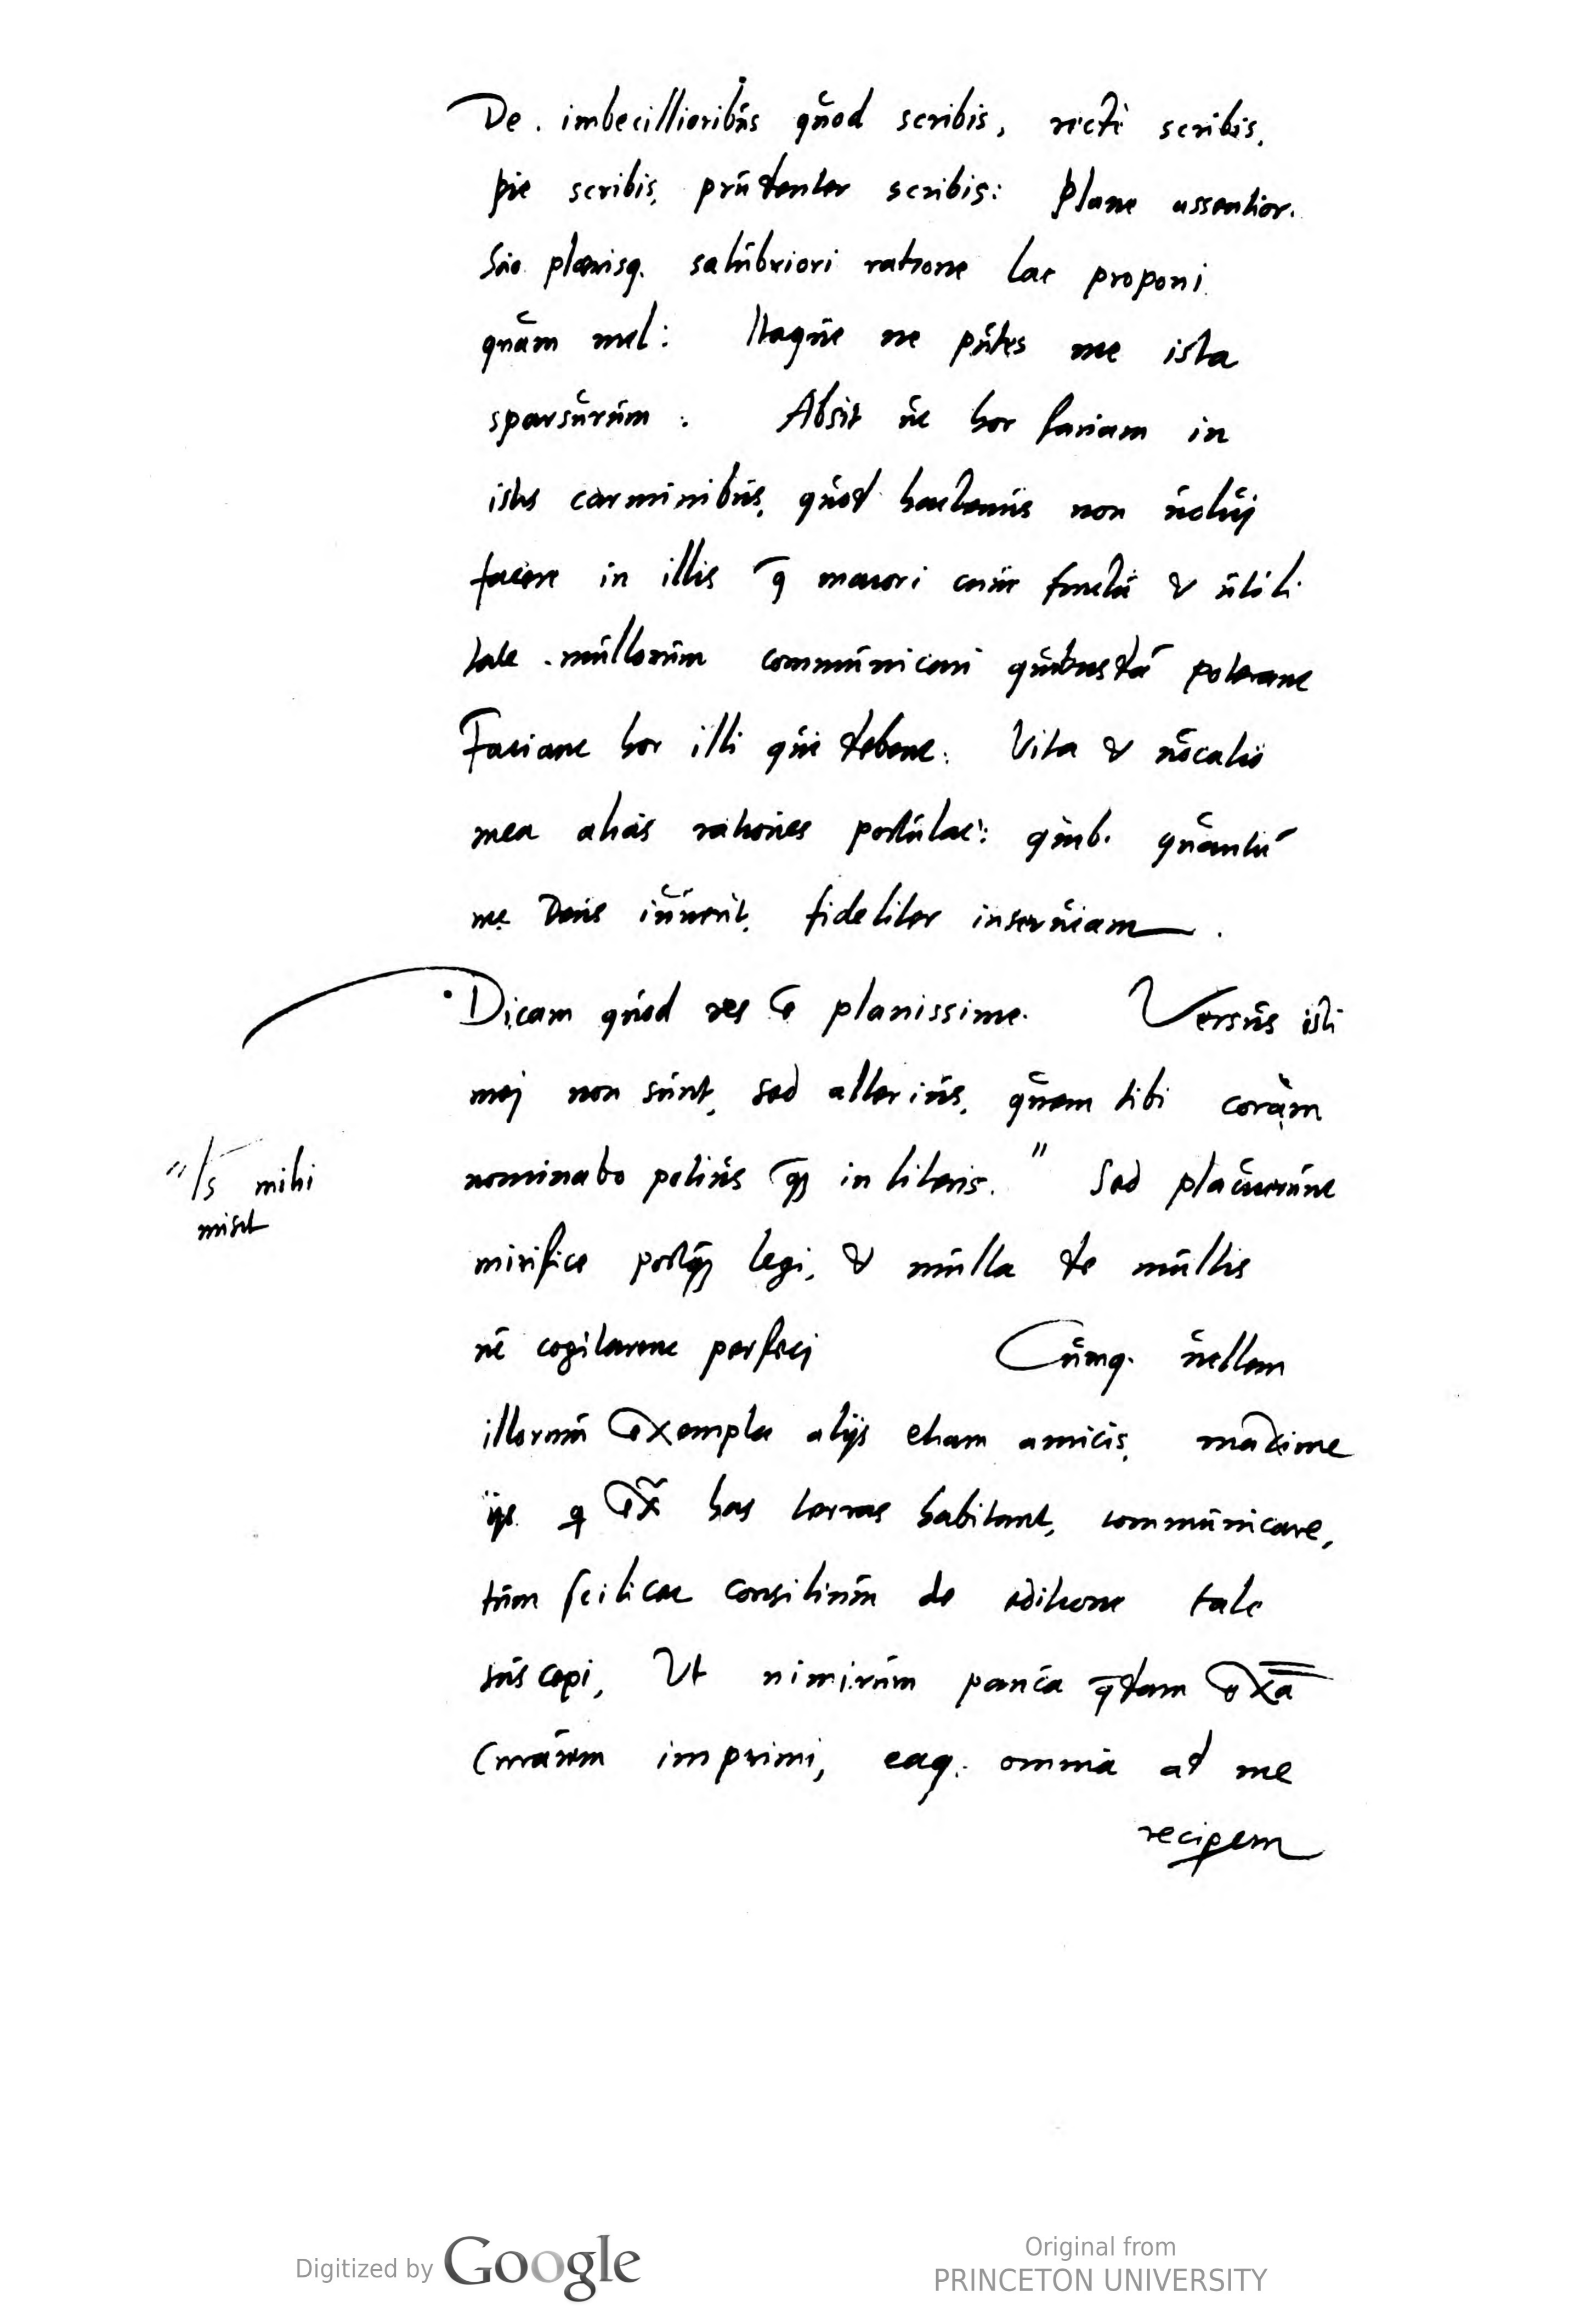 De. imbecillioribus quod scribis, recte scribis,
pie scribis, prudenter scribis: Plane assentior.
Scio plerisq. salubriori ratione lac proponi
quam mel: Itaque ne putes me ista
sparsurum: Absit ut hoc faciam in
istis carminibus, quod hactenus non uoluj
facere in illis q maiori cum fructu & utili
tate multorum communicari quibusdā poterant
Faciant hoc illi qui debent: Vita & uocatio
mea alias rationes postulat: quib. quantū
me Deus iuuerit, fideliter inseruiam.
Dicam quod res ē planissime. Versus isti
mej non sunt, sed alterius, quem tibi coràm
nominabo potius q̄ȝ in literis. " Sed placuerunt
"Is mihi
misit
mirifice postq̄ȝ legi, & multa de multis
ut cogitarent perfeci Cumq. uellem
illorum Exempla alijs etiam amicis, maxime
ijs q Ex̄ has terras habitant, communicare,
tum scilicet consilium de editione tale
suscepi, Ut nimirum pauca q̄dam Ex̄a
Curarem imprimi, eaq. omnia ad me
reciperem
Digitized by Google
Original from
PRINCETON UNIVERSITY